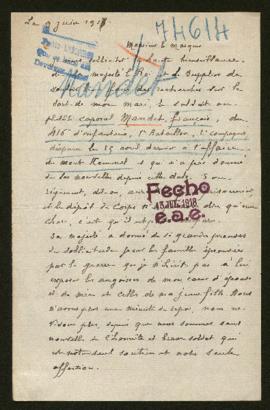 Le 9 juin 1918
74614
Monsieur le Marquis
Mandet
sa Majesté le Roi et de
des recherches sur le
sort de mon mari, le soldat ou
plutôt caporal Mandet François, du
416 d'infanterie, 1er Bataillon, 1e compagnie
disparu le 25 avril dernier à l'affaire
du mont Kemmel & qui n'a pas donné
de ses nouvelles depuis cette date. Son
régiment, dit-on, aurait
et le dépôt du Corps dire qu'une
chose, c'est qu'il
Fecho
13 JUL. 1918
e.a.e.
Sa majesté a donné de si grandes preuves
de sollicitude pour les familles éprouvées
par la guerre que je n'hésite pas à lui
exposer les angoisses de mon cœur d'épouse
et de mère et celles de ma jeune fille. Nous
n'avons plus une minute de repos, nous ne
plus, depuis que nous sommes sans
nouvelle de l'honnête et brave soldat qui
est notre seul soutien et notre seule
affection.